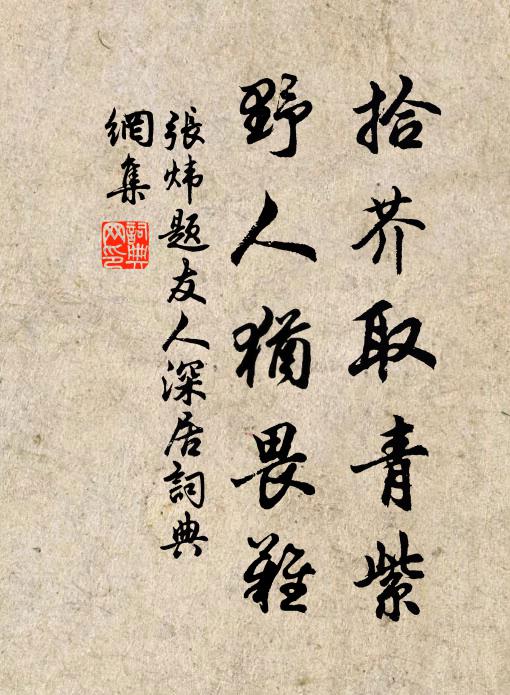 拾芥取青紫
野人猶畏難
張炜题友人深居詞典
網集
詞典
网印